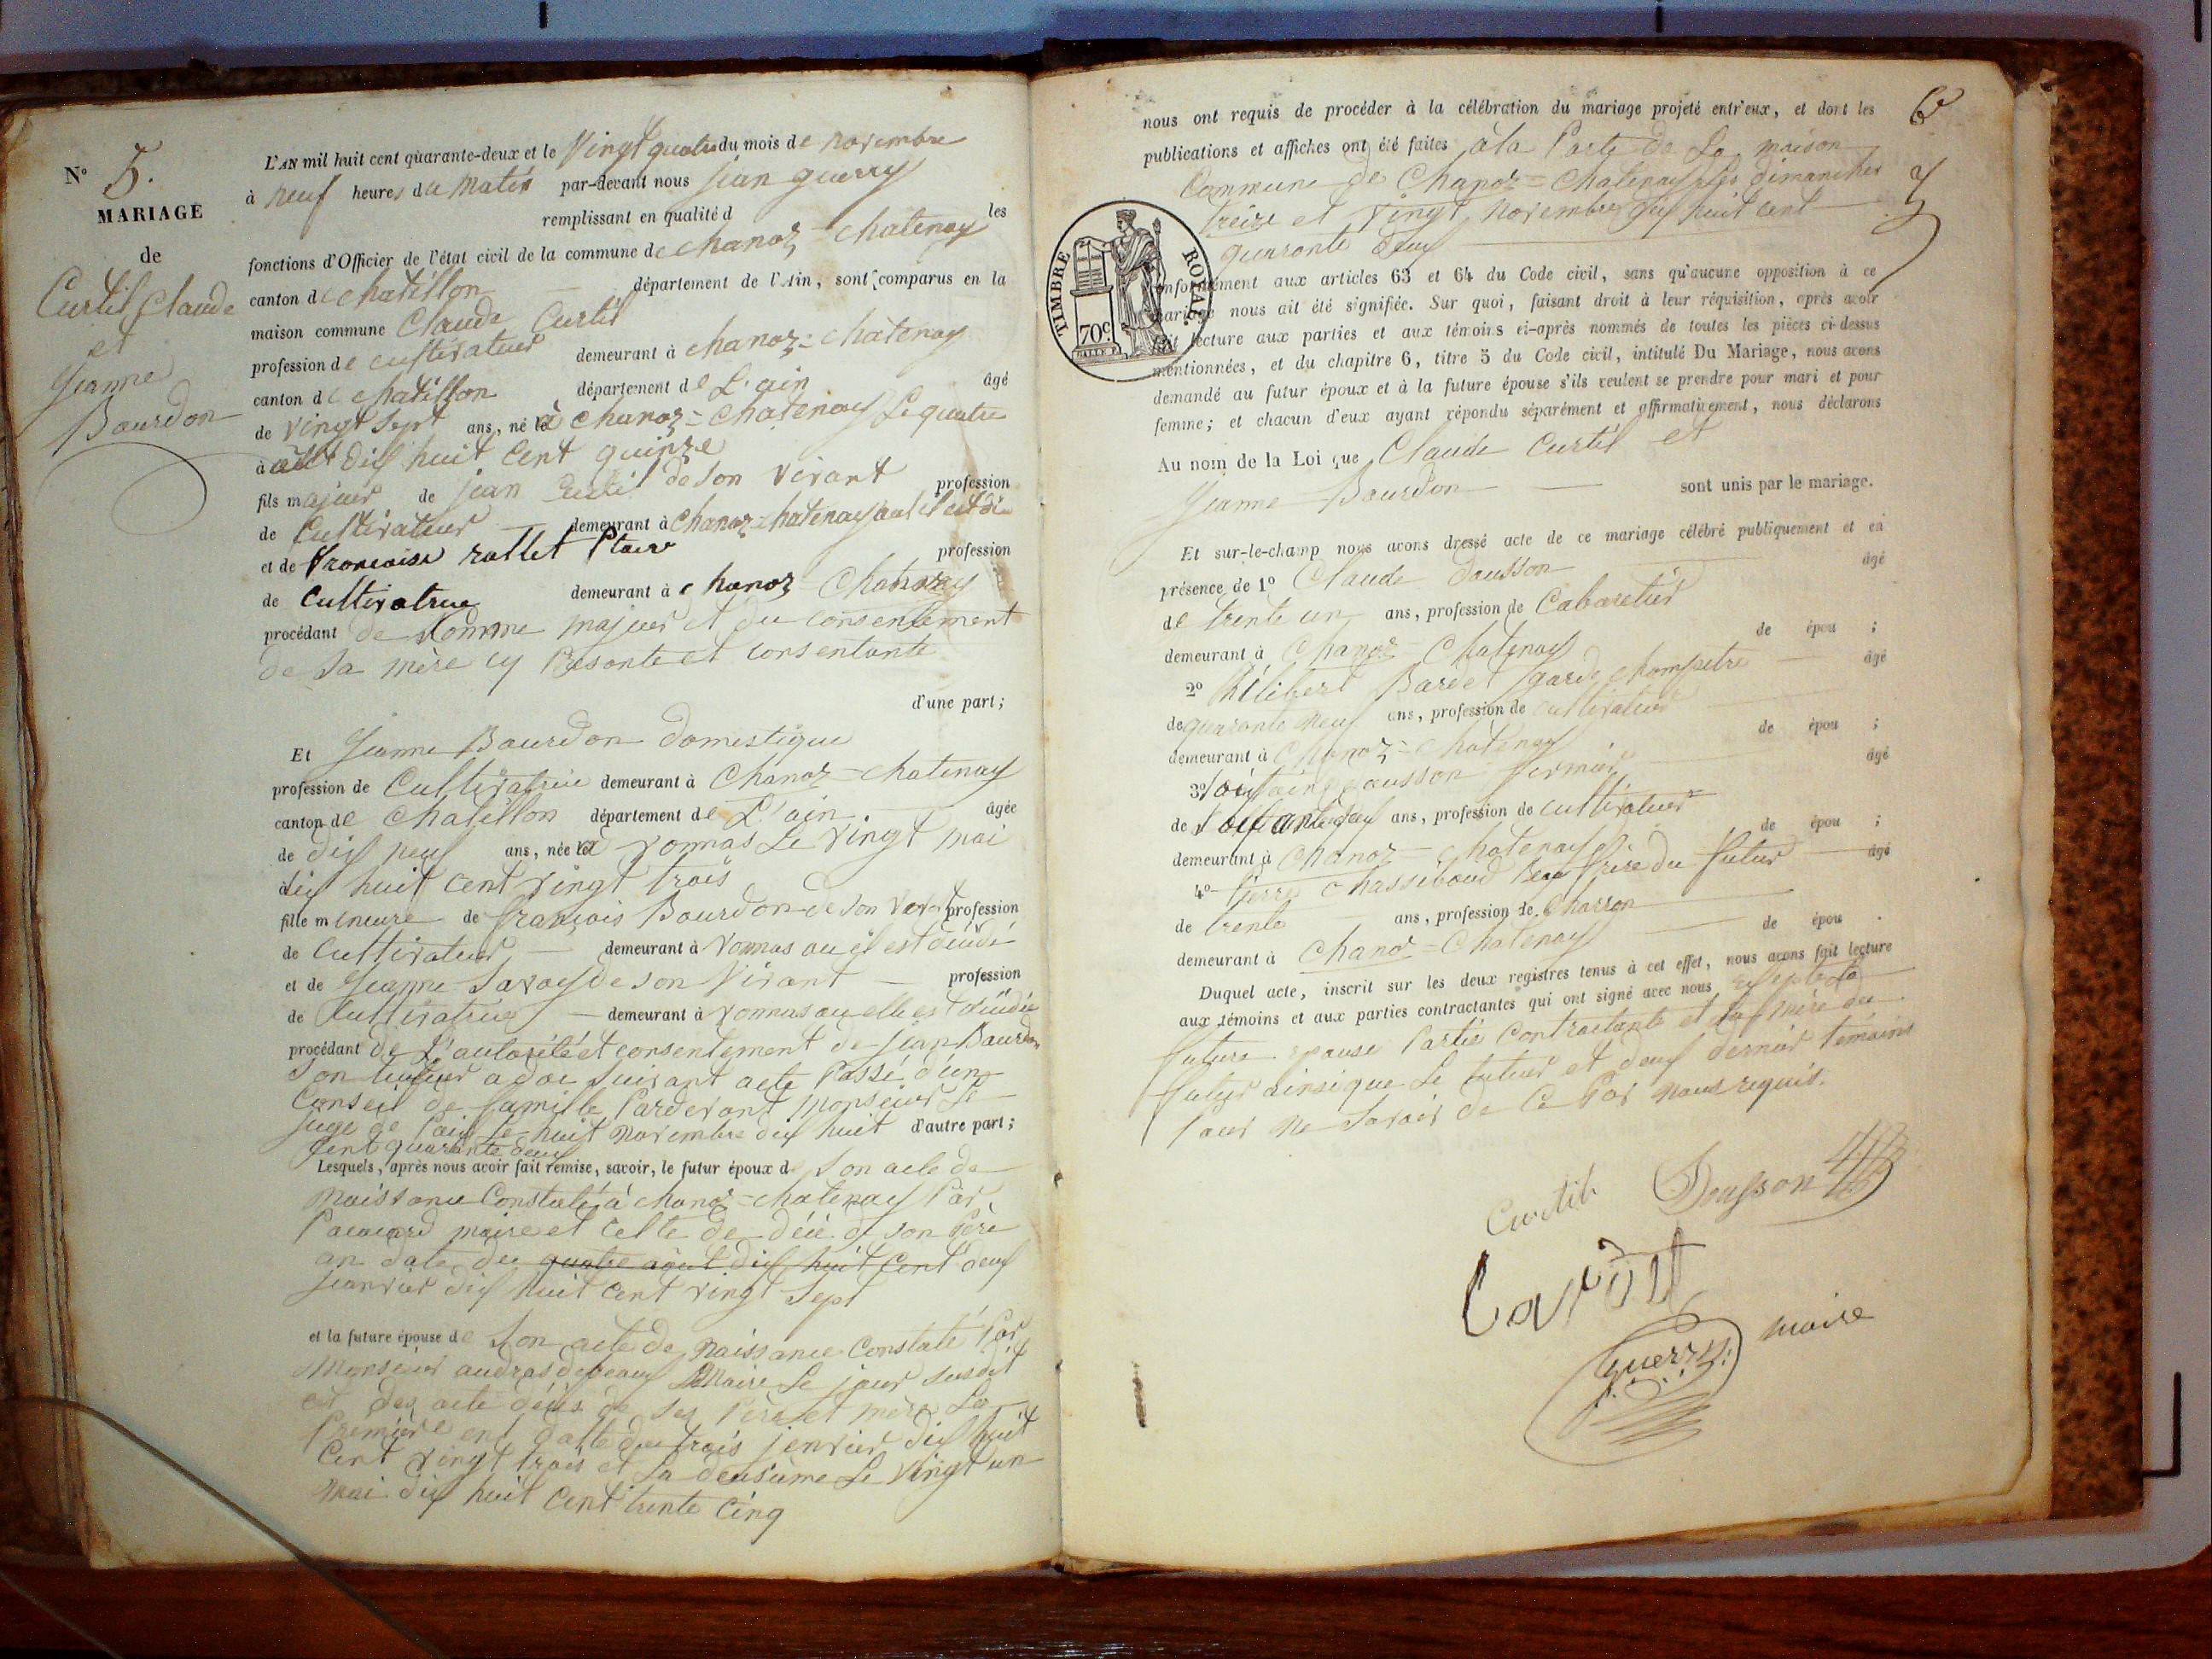 N° 5.
MARIAGE
de
Curtil Claude
et
Jeanne
Bourdon
L'AN mil huit cent quarante-deux et le Vingt quatre du mois de novembre
à neuf heures du matin par-devant nous jean guerry
remplissant en qualité d les
fonctions d'Officier de l'état civil de la commune de chanoz = chatenay
canton de chatillon département de l'Ain, sont comparus en la
maison commune Claude Curtil
profession de cultivateur demeurant à chanoz = chatenay
canton de chatillon département de L'ain âgé
de vingt sept ans, né à chanoz = chatenay Le quatre
août dix huit cent quinze
fils majeur de jean Curtil de son vivant profession
de Cultivateur demeurant à Chanoz chatenay
et de francoise rollet profession
de Cultivatrice demeurant à chanoz = Chatenay
procédant de homme majeur et du consentement
de sa mère cy Presante et consentante
d'une part;
Et Jeanne Bourdon domestique
profession de Cultivatrice demeurant à Chanoz = chatenay
canton de Chatillon département de L'ain âgée
de dix neuf ans, née à vonnas Le vingt mai
dix huit cent vingt trois
fille mineure de françois Bourdon de son vivant profession
de Cultivateur demeurant à vonnas ou il est décédé
et de Jeanne Savoy de son vivant profession
de Cultivatrice demeurant à vonnas ou elle est décédée
procédant de L'autorité et consentement de jean Bourdon
Son tuteur adoc suivant acte Passé d'un
Conseil de famille Pardevant Monsieur Le
juge de Paix Le huit novembre dix huit d'autre part;
Cent quarante deux
Lesquels, après nous avoir fait remise, savoir, le futur époux de Son acte de
naissance Constaté à chanoz = chatenay Par
maire et celle de décé de son Père
an date du quatre août dix huit Cent deux
janvier dix huit cent vingt Sept
et la future épouse de Son acte de naissance Constaté Par
Monsieur Maire Le jour susdit
et des acte décès de ses Père et mère La
Première ent datte du trois jenvier dix huit
Cent vingt trois et La deusième Le vingt un
Mai dix huit Cent trente Cinq
6
nous ont requis de procéder à la célébration du mariage projeté entr'eux, et dont les
publications et affiches ont été faites à la Porte de La maison
Commune de Chanoz = Chatenay Les dimanches
treize et vingt novembre dix huit cent
quarante deux
conformément aux articles 63 et 64 du Code civil, sans qu'aucune opposition à ce
mariage nous ait été signifiée. Sur quoi, faisant droit à leur réquisition, après avoir
fait lecture aux parties et aux témoins ci-après nommés de toutes les pièces ci-dessus
mentionnées, et du chapitre 6, titre 5 du Code civil, intitulé Du Mariage, nous avons
demandé au futur époux et à la future épouse s'ils veulent se prendre pour mari et pour
femme; et chacun d'eux ayant répondu séparément et affirmativement, nous déclarons
TIMBRE ROYAL.
70c.
Au nom de la Loi que Claude Curtil et
Jeanne Bourdon sont unis par le mariage.
Et sur-le-champ nous avons dressé acte de ce mariage célébré publiquement et en
présence de 1° Claude Dousson âgé
de trente un ans, profession de Cabaretier
demeurant à Chanoz = Chatenay de épou ;
2° Philibert Bardet garde champetre âgé
de quarante neuf ans, profession de cultivateur
demeurant à Chanoz = chatenay de épou ;
3° dousson fermier âgé
de ans, profession de cultivateur
demeurant à Chanoz = chatenay de épou ;
4° Pierre Chassiboud Beau frère du futur âgé
de trente ans, profession de Charron
demeurant à Chanoz = Chatenay de épou .
Duquel acte, inscrit sur les deux registres tenus à cet effet, nous avons fait lecture
aux témoins et aux parties contractantes qui ont signé avec nous
future epause Partie Contractante et La mère du
futur ainsi que Le tuteur et deux dernier témoins
Pour ne Savoir de Ce Par nous requis.
Curtil
Dousson
maire
Guerry